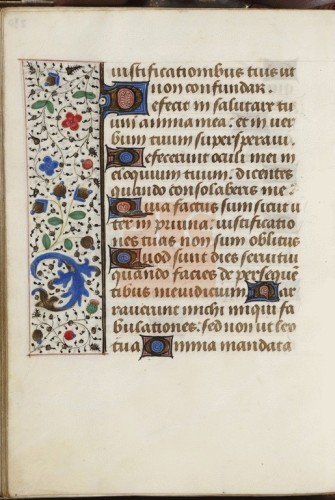 iustificationibus tuis ut
non confundar.
Defecit in salutare tu
um anima mea: et in ver
bum tuum supersperavi.
Defecerunt oculi mei in
eloquium tuum: dicentes
quando consolaberis me.
Quia factus sum sicut u
ter in pruina: iustificatio
nes tuas non sum oblitus
Quod sunt dies servi tui
quando facies de persequē
tibus me iudicium Nar
raverunt michi iniqui fa
bulationes: sed non ut lex
tua Omnia mandata